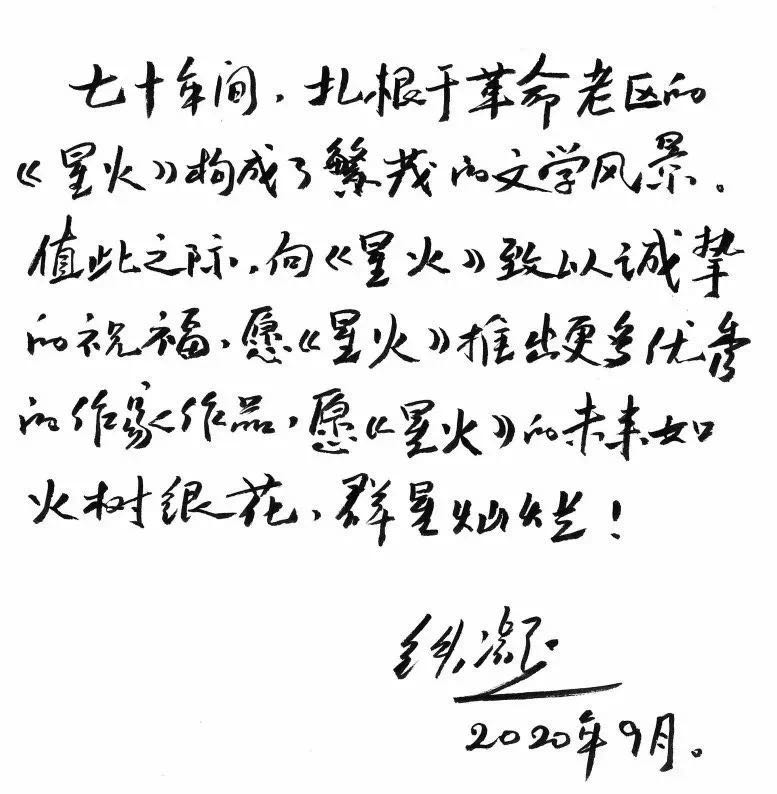 七十年间，扎根于革命老区的
《星火》构成了繁茂的文学风景。
值此之际，向《星火》致以诚挚
的祝福，愿《星火》推出更多优秀
的作家作品，愿《星火》的未来如
火树银花，群星灿烂！
铁凝
2020年9月。